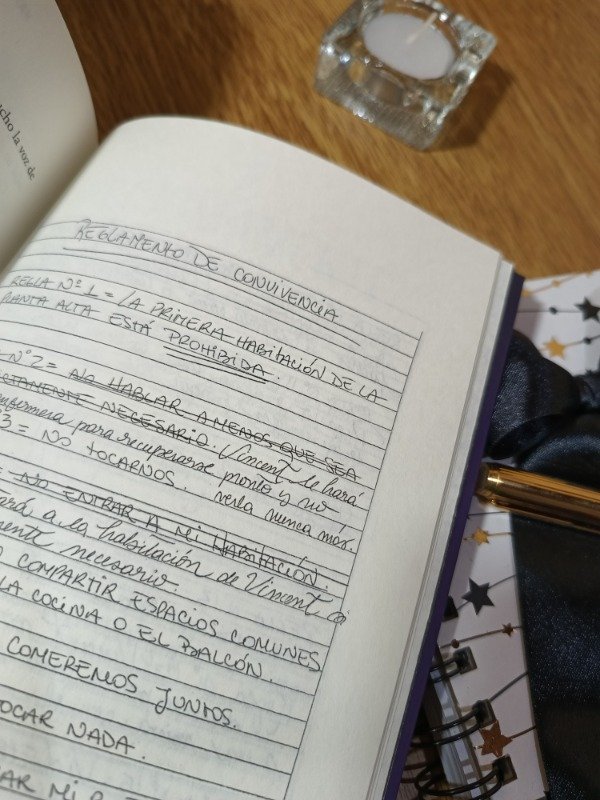 ucho la voz de
REGLAMENTO DE CONVIVENCIA
REGLA Nº 1 = LA PRIMERA HABITACIÓN DE LA
PLANTA ALTA ESTÁ PROHIBIDA.
Nº 2 = NO HABLAR A MENOS QUE SEA
NECESARIO. Vincent le hará
enfermera para recuperarse pronto y no
3 = NO TOCARNOS. verla nunca más.
NO ENTRAR A MI HABITACIÓN.
a la habitación de Vincent
necesario.
COMPARTIR ESPACIOS COMUNES
LA COCINA O EL BALCÓN.
COMEREMOS JUNTOS.
TOCAR NADA.
MI